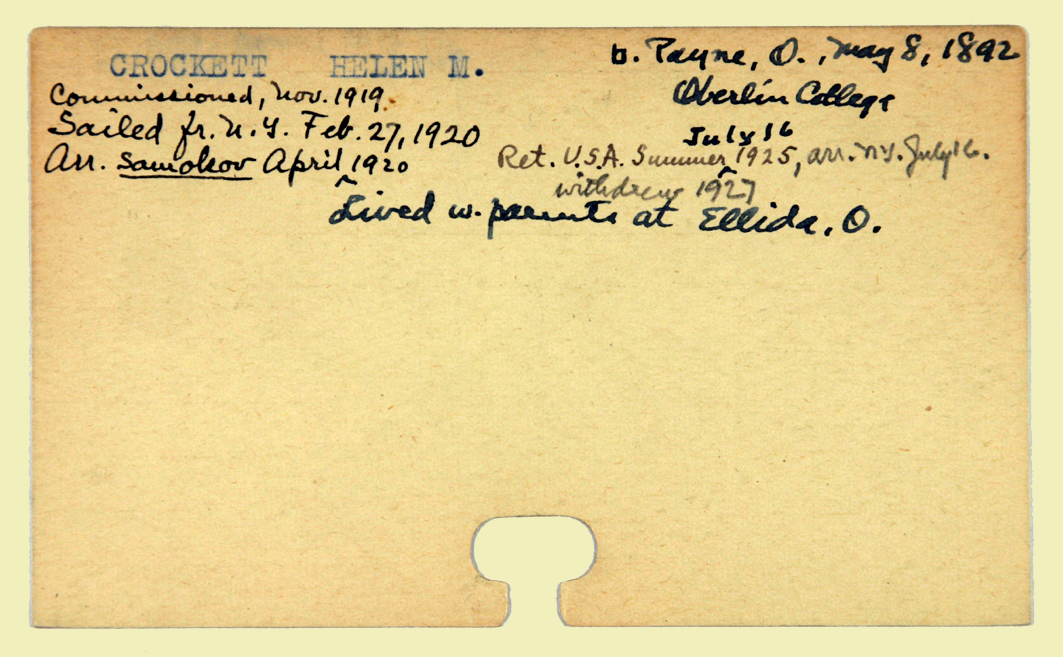 CROCKETT HELEN M.
b. Payne, O., May 8, 1892
Commissioned, Nov. 1919.
Oberlin College
Sailed fr. N.Y. Feb. 27, 1920
July 16
Arr. Samokov April 1920
Ret. U.S.A. Summer ^ 1925, arr. N.Y. July 16.
withdrew 1927
^ Lived w. parents at Ellida, O.